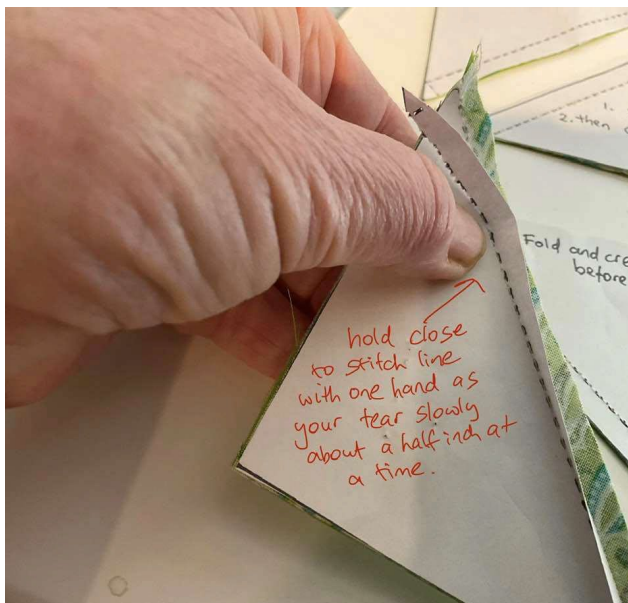 1.
2. then
Fold and cre
before
hold close
to stitch line
with one hand as
your tear slowly
about a half inch at
a time.